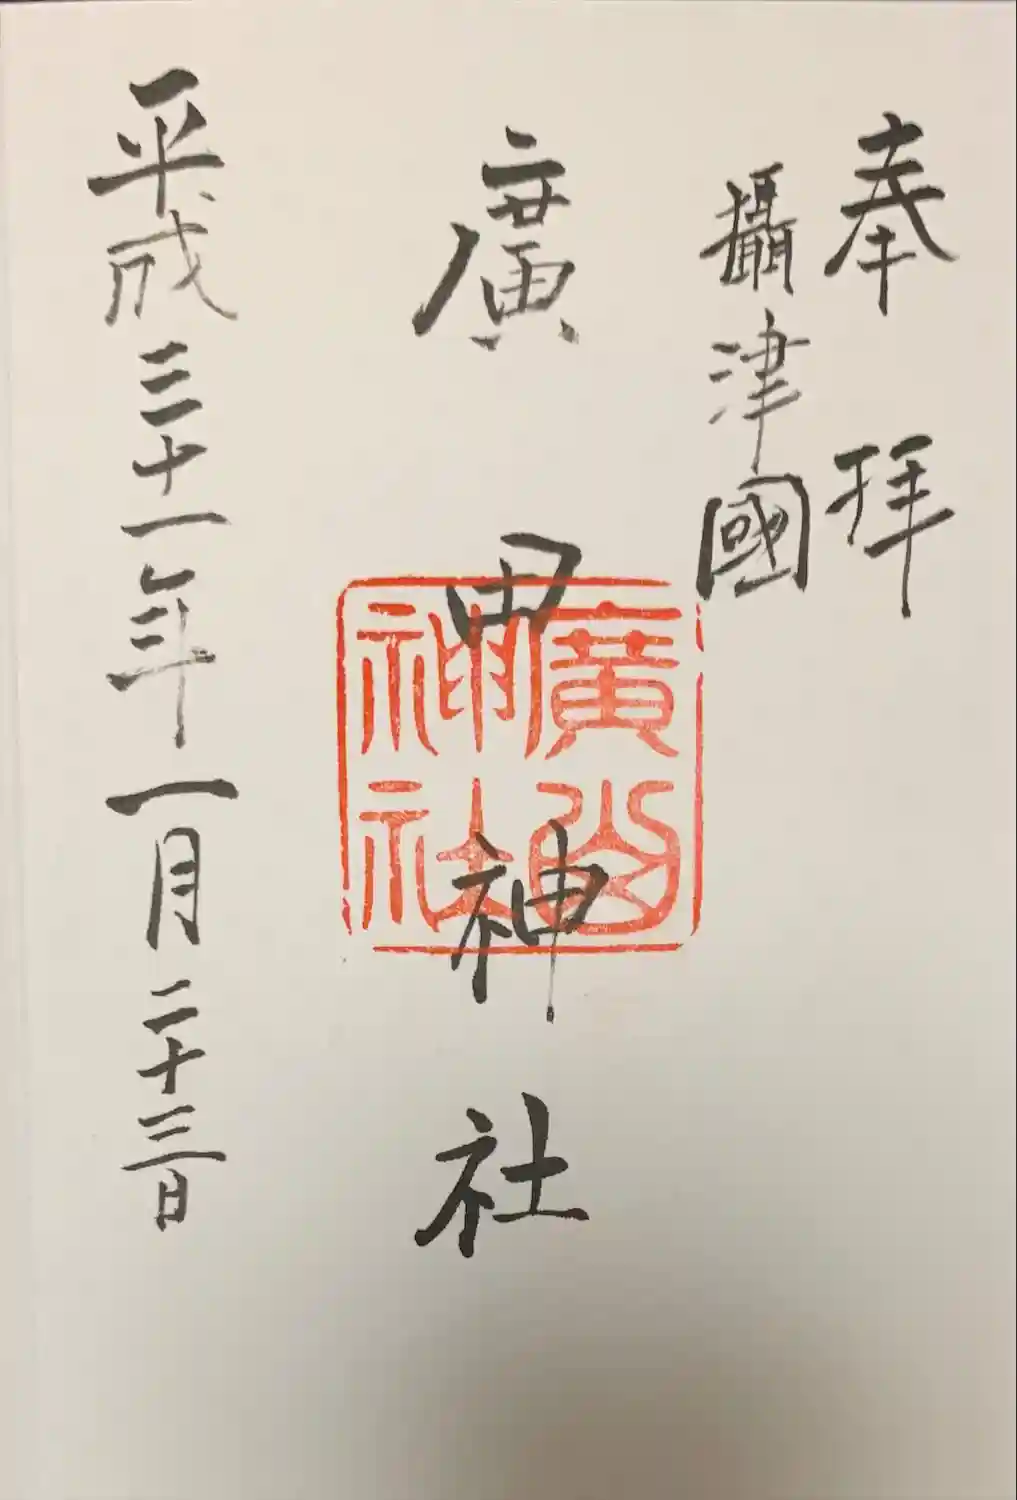 奉拝
攝津國
廣田神社
平成三十一年一月二十三日